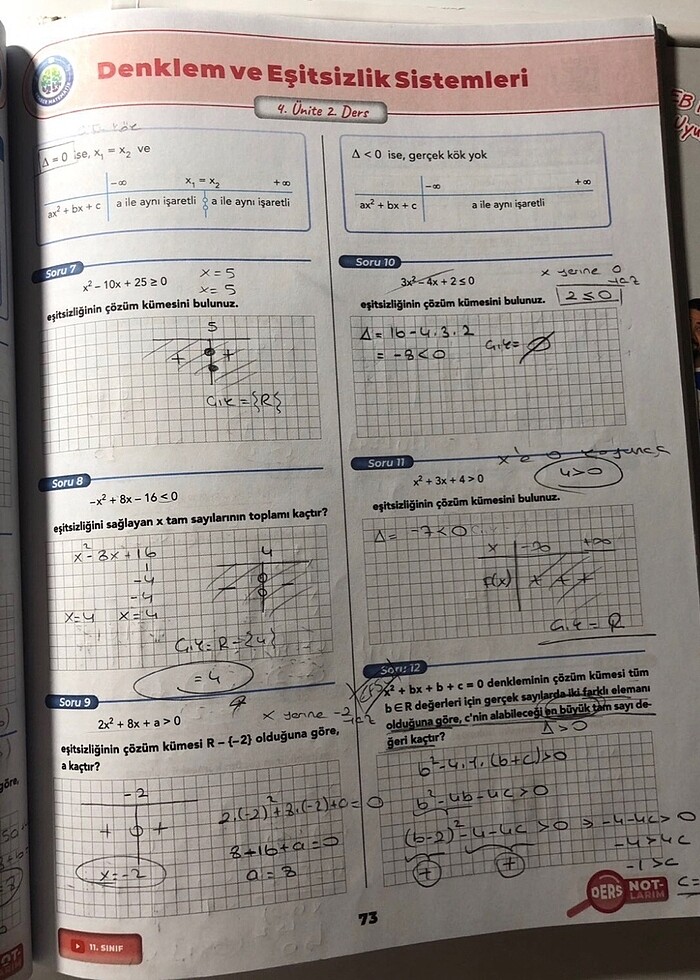 Denklem ve Eşitsizlik Sistemleri
4. Ünite 2. Ders
Δ = 0 ise, x₁ = x₂ ve
−∞ x₁ = x₂ +∞
ax² + bx + c a ile aynı işaretli a ile aynı işaretli
Δ < 0 ise, gerçek kök yok
−∞ +∞
ax² + bx + c a ile aynı işaretli
Soru 7
x² − 10x + 25 ≥ 0
x = 5
x = 5
eşitsizliğinin çözüm kümesini bulunuz.
5
+ +
Ç.K = {R}
Soru 8
−x² + 8x − 16 < 0
eşitsizliğini sağlayan x tam sayılarının toplamı kaçtır?
x² − 8x + 16
−4
−4
x = 4 x = 4
4
− −
Ç.K = R − {4}
= 4
Soru 9
2x² + 8x + a > 0
x yerine −2 yaz
eşitsizliğinin çözüm kümesi R − {−2} olduğuna göre,
a kaçtır?
−2
+ +
x = −2
2.(−2)² + 8.(−2) + a = 0
8 + 16 + a = 0
a = 8
Soru 10
3x² − 4x + 2 ≤ 0
x yerine 0
yaz
2 ≤ 0
eşitsizliğinin çözüm kümesini bulunuz.
Δ = 16 − 4.3.2
= −8 < 0
Ç.K = ∅
Soru 11
x² + 3x + 4 > 0
4 > 0
eşitsizliğinin çözüm kümesini bulunuz.
Δ = −7 < 0
x −∞ +∞
f(x) + + +
Ç.K = R
Soru 12
x² + bx + b + c = 0 denkleminin çözüm kümesi tüm
b ∈ R değerleri için gerçek sayılarda iki farklı elemanı
olduğuna göre, c'nin alabileceği en büyük tam sayı de-
ğeri kaçtır?
Δ > 0
b² − 4.1.(b+c) > 0
b² − 4b − 4c > 0
(b−2)² − 4 − 4c > 0 ⇒ −4 − 4c > 0
−4 > 4c
−1 > c
c =
+ +
DERS NOT-
LARIM
73
11. SINIF